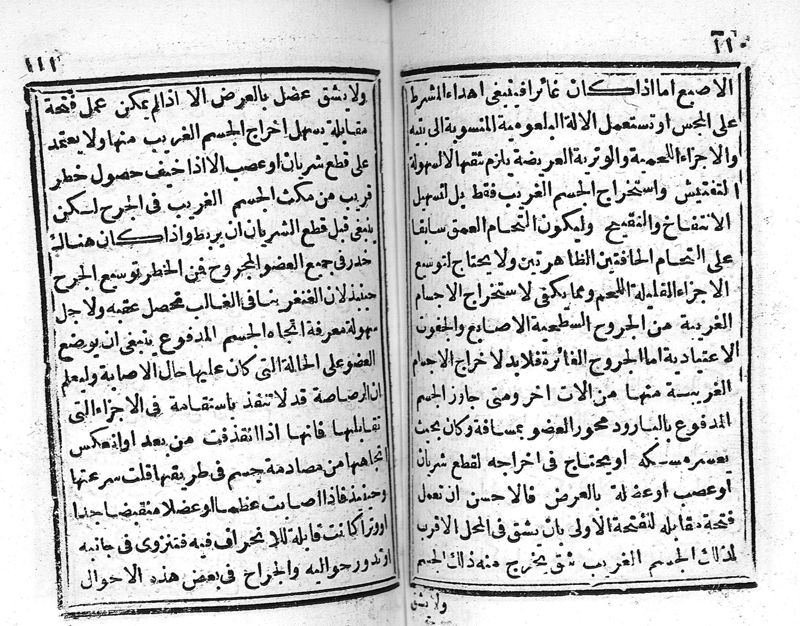 ١١٠
الاصبع اما اذا كان غائرا فينبغى اهداء المشرط
على المجس او تستعمل الالة البلعومية المنسوبة الى بتيه
والاجزاء اللحمية والوترية العريضة يلزم شقها لا لسهولة
التفتيش واستخراج الجسم الغريب فقط بل لتسهيل
الانتفاخ والتقيح وليكون التحام العمق سابقا
على التحام الحافتين الظاهرتين ولا يحتاج لتوسيع
الاجزاء القليلة اللحم ومما يكفى لاستخراج الاجسام
الغريبة من الجروح السطحية الاصابع والجفوت
الاعتيادية اما الجروح الغائرة فلابد لاخراج الاجسام
الغريبة منها من الات اخر ومتى جاوز الجسم
المدفوع بالبارود محور العضو بمسافة وكان بحيث
يعسر مسكه او يحتاج فى اخراجه لقطع شريان
او عصب او عضلة بالعرض فالاحسن ان تعمل
فتحة مقابلة للفتحة الاولى بان يشق فى المحل الاقرب
لذلك الجسم الغريب شق يخرج منه ذلك الجسم
ولا يشق
١١١
ولا يشق عضل بالعرض الا اذا لم يمكن عمل فتحة
مقابلة يسهل اخراج الجسم الغريب منها ولا يعتمد
على قطع شريان او عصب الا اذا خيف حصول خطر
قريب من مكث الجسم الغريب فى الجرح لكن
ينبغى قبل قطع الشريان ان يربط واذا كان هناك
خدر فى جميع العضو المجروح فمن الخطر توسيع الجرح
حينئذ لان الغنغرينا فى الغالب تحصل عقبه ولاجل
سهولة معرفة اتجاه الجسم المدفوع ينبغى ان يوضع
العضو على الحالة التى كان عليها حال الاصابة وليعلم
ان الرصاصة قد لا تنفذ باستقامة فى الاجزاء التى
تقابلها فانها اذا انقذفت من بعد او انعكس
اتجاهها من مصادمة جسم فى طريقها قلت سرعتها
وحينئذ فاذا اصابت عظما او عضلا منقبضا جدا
او وترا كانت قابلة للانحراف فيه فتنزوى فى جانبه
او تدور حواليه والجراح فى بعض هذه الاحوال